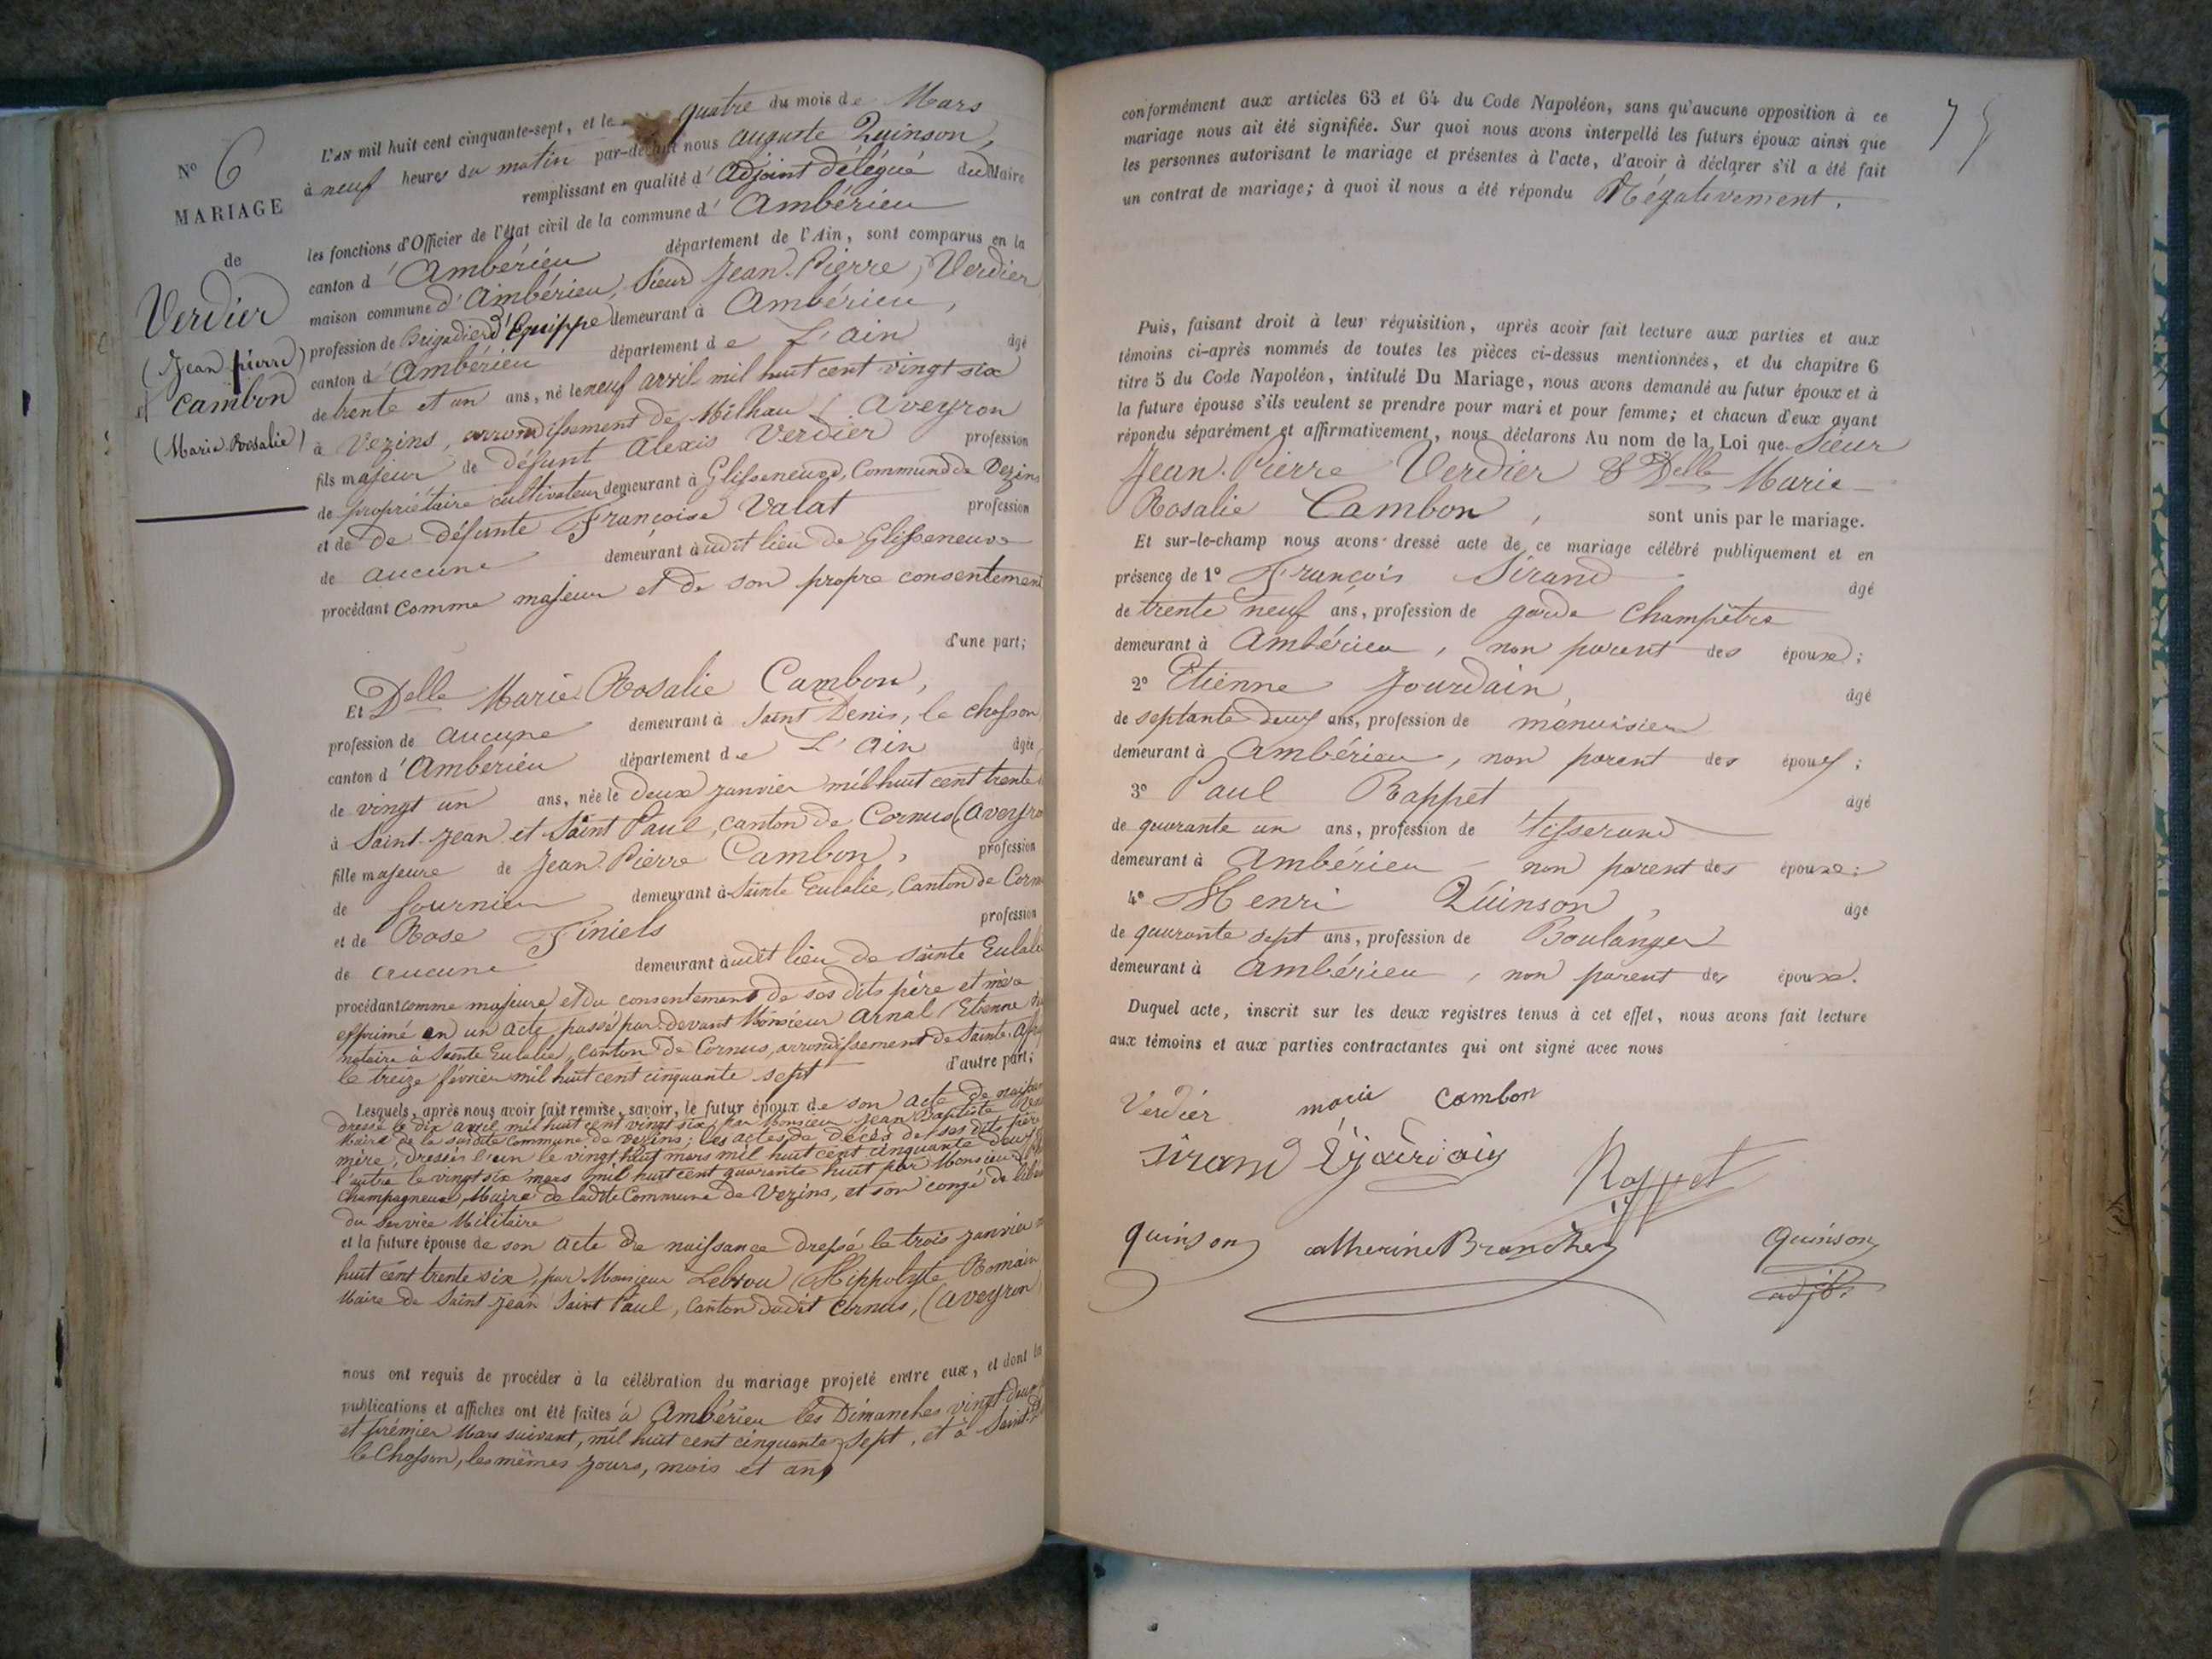 N° 6
MARIAGE
de
Verdier
(Jean pierre)
et Cambon
(Marie Rosalie)
L'AN mil huit cent cinquante-sept, et le quatre du mois de Mars
à neuf heures du matin par-devant nous auguste Quinson,
remplissant en qualité d'Adjoint délégué du Maire
les fonctions d'Officier de l'état civil de la commune d'Ambérieu
canton d'Ambérieu département de l'Ain, sont comparus en la
maison commune d'Ambérieu, Sieur Jean-Pierre, Verdier
profession de Brigadier d'Equippe demeurant à Ambérieu,
canton d'Ambérieu département de L'ain âgé
de trente et un ans, né le neuf avril mil huit cent vingt six
à Vezins, arrondissement de Milhau (Aveyron
fils majeur de défunt Alexis Verdier profession
de propriétaire cultivateur demeurant à Glisseneuve, Commune de Vezins
et de de défunte Françoise Valat profession
de aucune demeurant audit lieu de Glisseneuve
procédant comme majeur et de son propre consentement
d'une part;
Et Delle Marie Rosalie Cambon,
profession de aucune demeurant à Saint Denis, le chosson
canton d'Ambérieu département de L'ain âgée
de vingt un ans, née le deux janvier mil huit cent trente
à Saint-Jean et Saint Paul, canton de Cornus (Aveyro
fille majeure de Jean-Pierre Cambon, profession
de fournier demeurant à Sainte Eulalie, Canton de Corn
et de Rose Finiels profession
de aucune demeurant audit lieu de Sainte Eulali
procédant comme majeure et du consentement de ses dits père et mère
exprimé en un acte, passé par-devant Monsieur Arnal (Etienne
notaire à Sainte Eulalie, Canton de Cornus, arrondissement de Sainte-Afri
le treize février mil huit cent cinquante sept d'autre part;
Lesquels, après nous avoir fait remise, savoir, le futur époux de son acte de naissan
dressé le dix avril mil huit cent vingt six, par Monsieur Jean Baptiste
Maire de la susdite Commune de Vezins; les actes de décès de ses dits père
mère, dressés l'un le vingt huit mars mil huit cent cinquante deux
l'autre le vingt six mars mil huit cent quarante huit par Monsieur
Champagneux, Maire de ladite Commune de Vezins, et son congé de
du service Militaire
et la future épouse de son acte de naissance dressé le trois janvier
huit cent trente six, par Monsieur Lebrou (Hippolyte Romain
Maire de Saint Jean Saint Paul, Canton dudit Cornus, (aveyron)
nous ont requis de procéder à la célébration du mariage projeté entre eux, et dont les
publications et affiches ont été faites à Ambérieu les Dimanches vingt-deux
et prémier Mars suivant, mil huit cent cinquante sept, et à Saint-
le Chosson, les mêmes jours, mois et an,
75
conformément aux articles 63 et 64 du Code Napoléon, sans qu'aucune opposition à ce
mariage nous ait été signifiée. Sur quoi nous avons interpellé les futurs époux ainsi que
les personnes autorisant le mariage et présentes à l'acte, d'avoir à déclarer s'il a été fait
un contrat de mariage; à quoi il nous a été répondu Négativement.
Puis, faisant droit à leur réquisition, après avoir fait lecture aux parties et aux
témoins ci-après nommés de toutes les pièces ci-dessus mentionnées, et du chapitre 6
titre 5 du Code Napoléon, intitulé Du Mariage, nous avons demandé au futur époux et à
la future épouse s'ils veulent se prendre pour mari et pour femme; et chacun d'eux ayant
répondu séparément et affirmativement, nous déclarons Au nom de la Loi que Sieur
Jean-Pierre Verdier & Delle Marie
Rosalie Cambon, sont unis par le mariage.
Et sur-le-champ nous avons dressé acte de ce mariage célébré publiquement et en
présence de 1° François Sirand âgé
de trente neuf ans, profession de garde Champêtre
demeurant à Ambérieu, non parent des époux;
2° Etienne Jourdain, âgé
de septante deux ans, profession de menuisier
demeurant à Ambérieu, non parent des époux;
3° Paul Rappet âgé
de quarante un ans, profession de tisserand
demeurant à Ambérieu non parent des époux;
4° Henri Quinson, âgé
de quarante sept ans, profession de Boulanger
demeurant à Ambérieu, non parent des époux.
Duquel acte, inscrit sur les deux registres tenus à cet effet, nous avons fait lecture
aux témoins et aux parties contractantes qui ont signé avec nous
Verdier marie Cambon
Sirand
Rappet
quinson catherine Branche
Quinson
adjt.